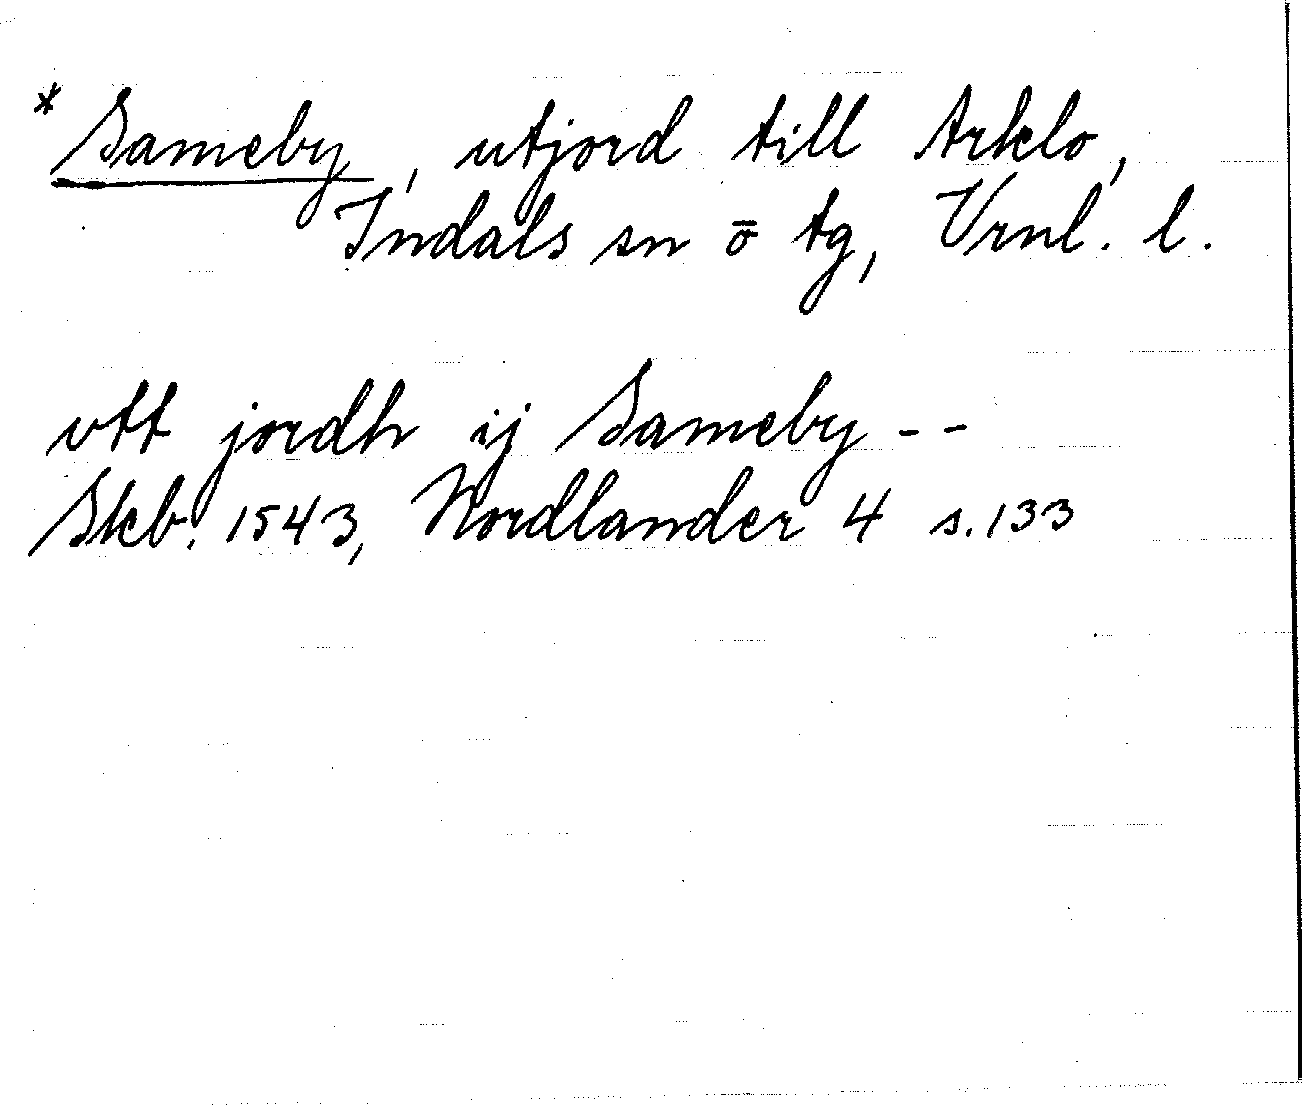 * Sameby, utjord till Arklo,
Indals sn ö tg, Vrnl. l.
vtt jordh ij Sameby - -
Skb. 1543, Nordlander 4 s. 133